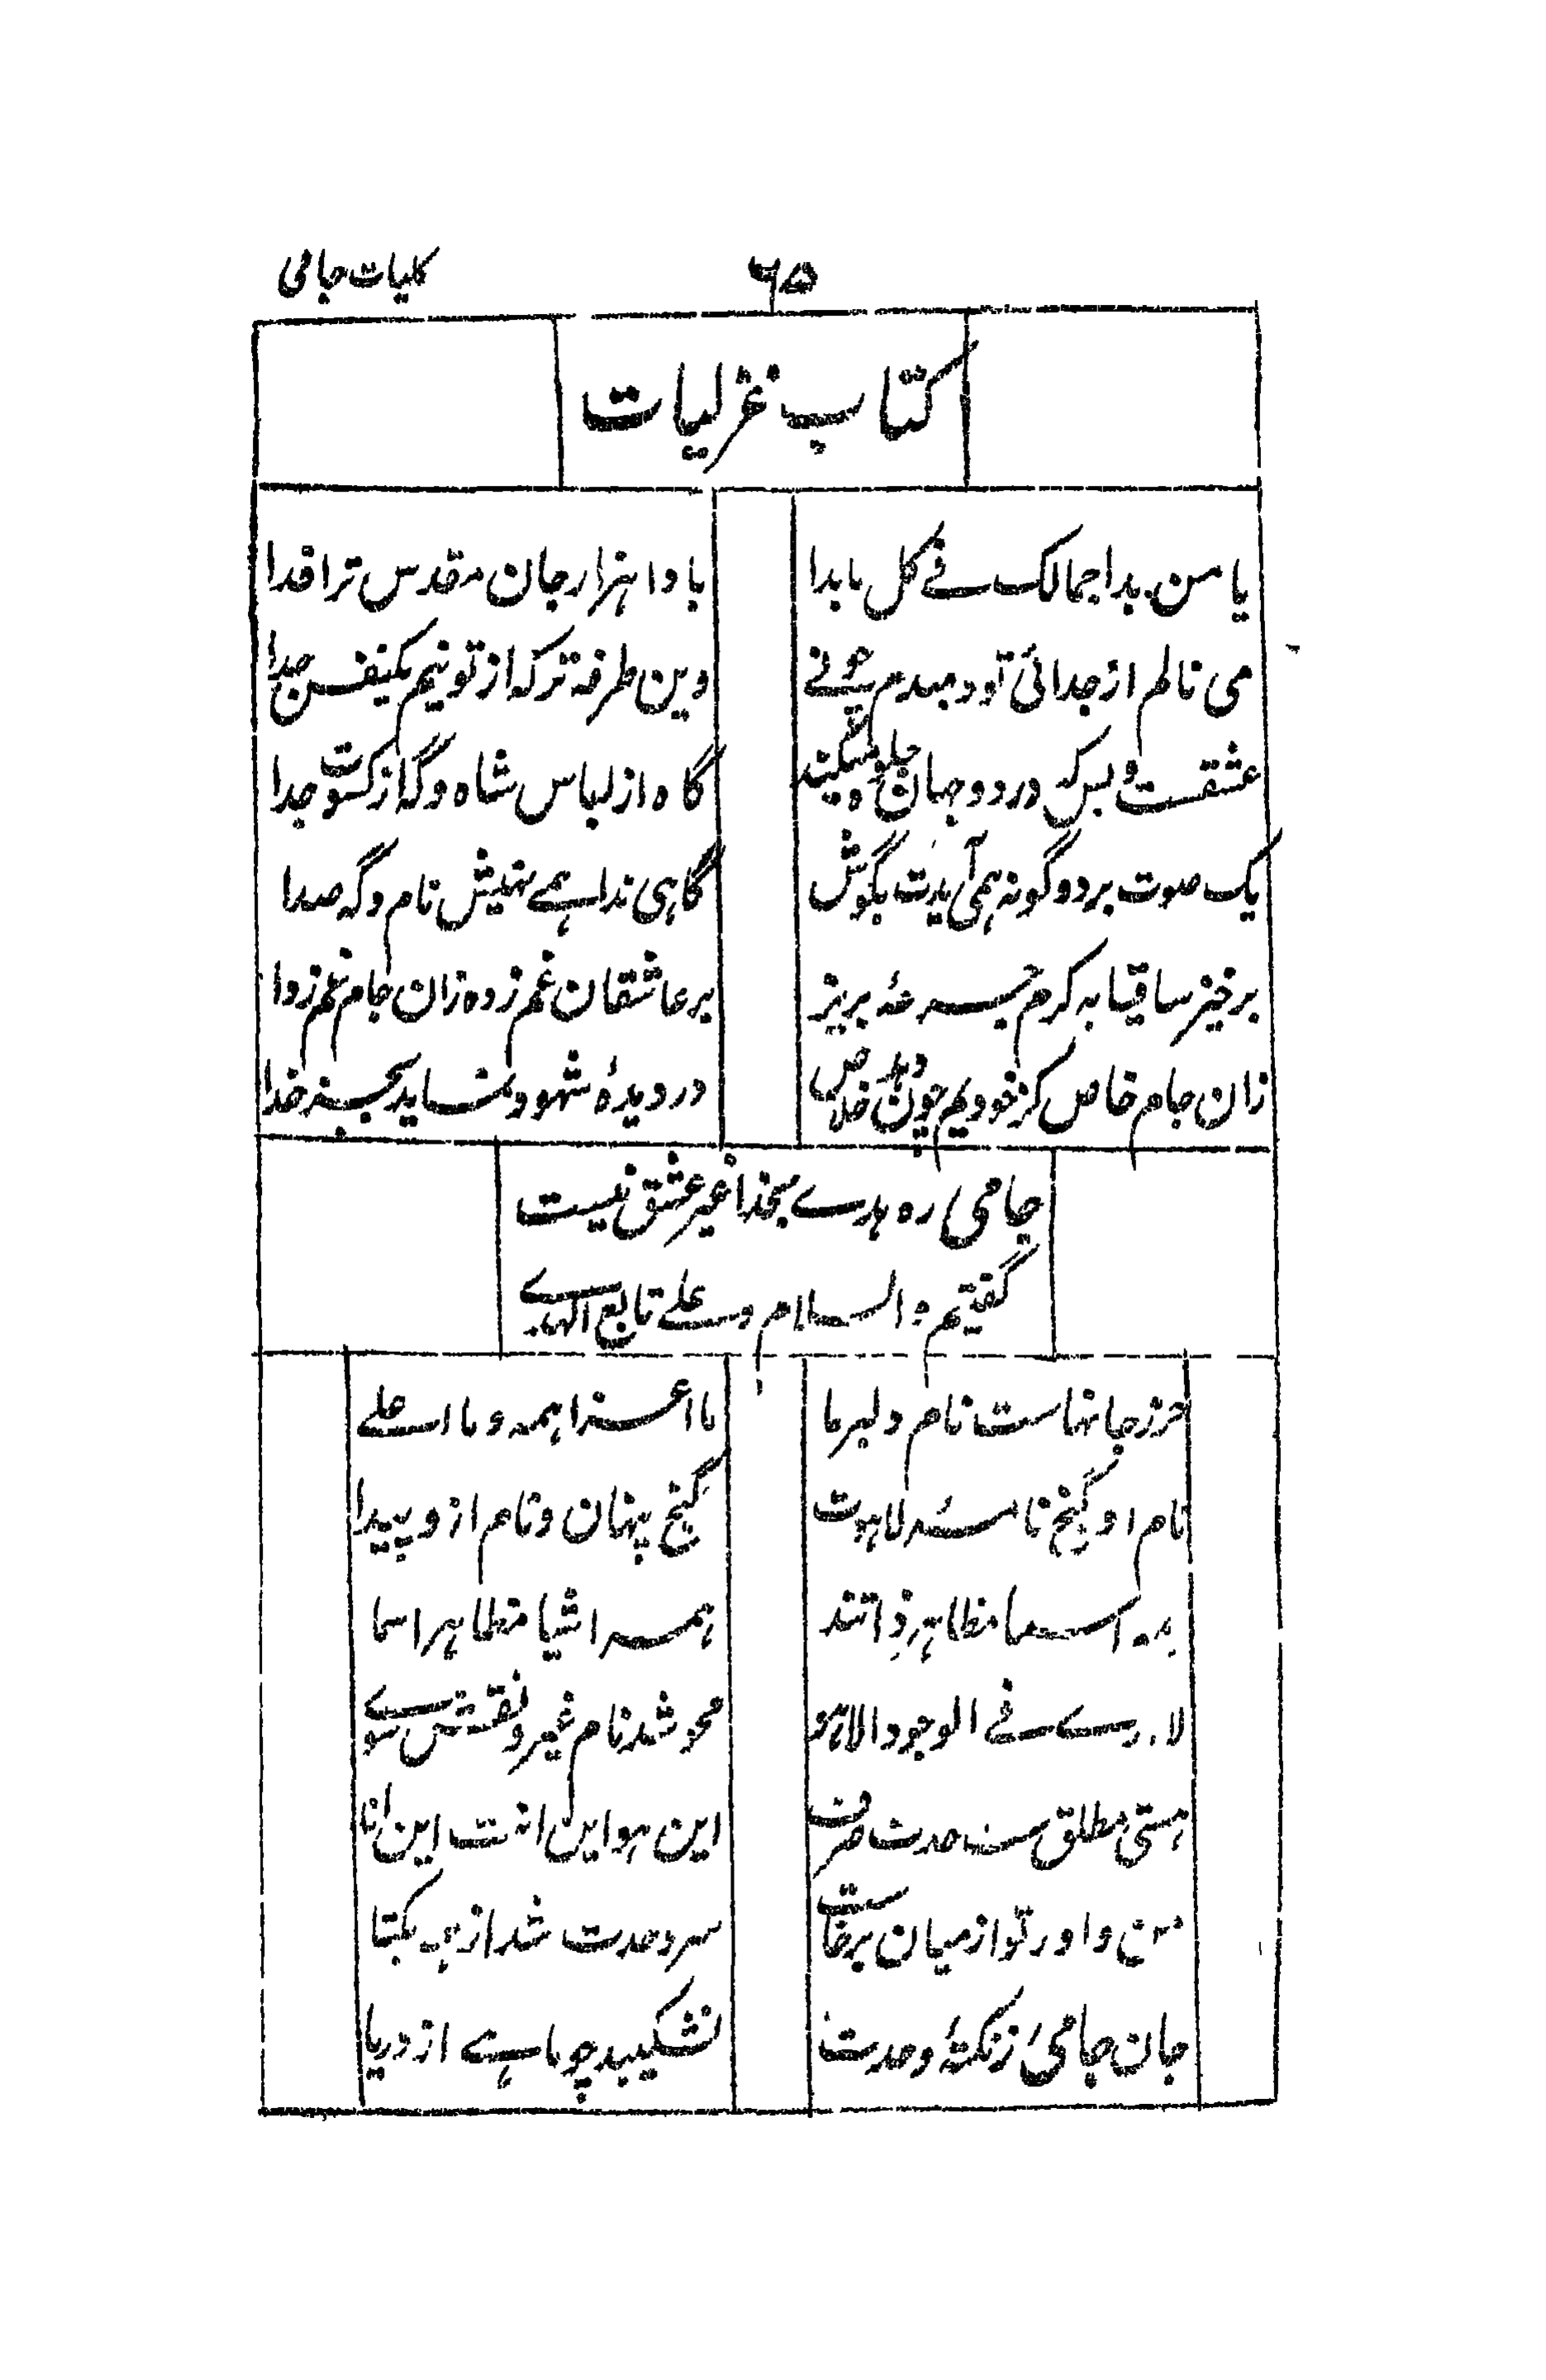 کلیات جامی
۶۵
کتاب غزلیات
یا من بدا جمالک فے کل مابدا
بادا هزار جان مقدس ترا فدا
می نالم از جدائی تو دمبدم چونے
وین طرفه ترکه از تو نیم یکنفس جدا
عشقست و بس که در دو جهان جلوه میکند
گاه از لباس شاه و گه از کسوت جدا
یک صوت بر دو گونه همی آیدت بگوش
گاهی ندا همے نهیش نام و گه صدا
برخیز ساقیا به کرم جرعۂ بریز
بر عاشقان غم زده زان جام غم زدا
زان جام خاص کز خودیم چون دهد خلاص
در دیدۂ شهود نماید بجز خدا
جامی ره هدے بخدا غیر عشق نیست
گفتیم والسلام علے تابع الهدے
حرز جانهاست نام دلبر ما
ما اعز اهمه و ما اعلے
نام او گنج نامۂ لاهوت
گنج پنهان و نام ازو پیدا
اسما مظاهر ذاتند
همه اشیا مظاهر اسما
لا فے الوجود الا هو
محو شد نام غیر و نقش سوے
هستی مطلق وحدت صرف
این هو این انت این انا
من و او و تو از میان برخاست
سر وحدت شد از یکتا
جان جامی ز نکتۂ وحدت
نشکیبد چو ماهے از دریا